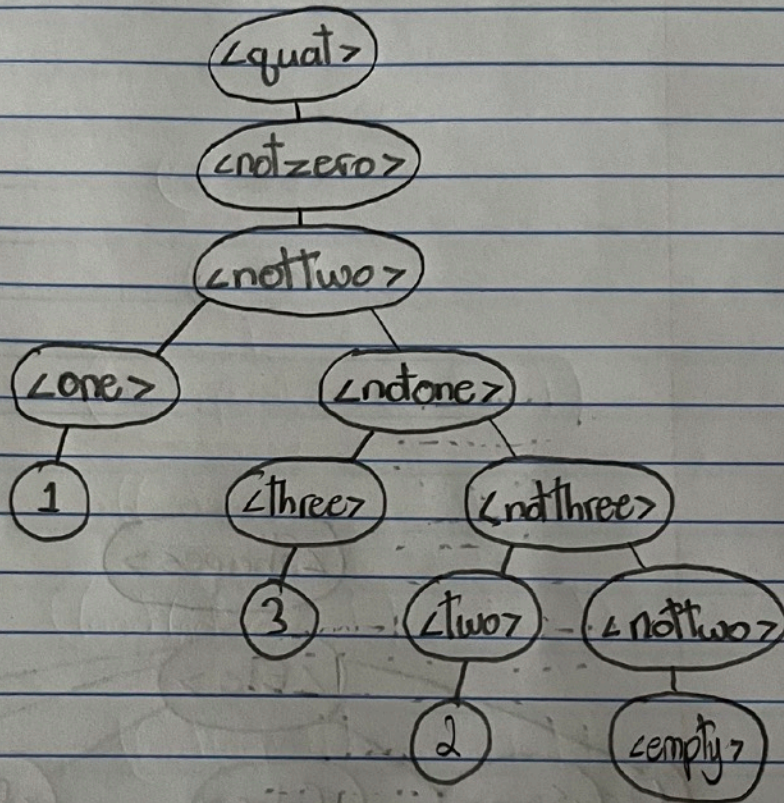 <quat>
<notzero>
<nottwo>
<one> <notone>
1 <three> <notthree>
3 <two> <nottwo>
2 <empty>